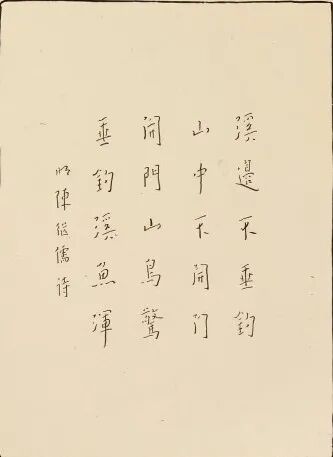 溪邊不垂釣
山中不開门
開門山鳥驚
垂釣溪魚渾
明陳继儒诗